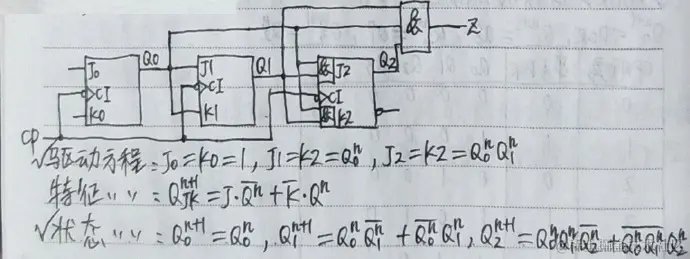 & Z
J0 Q0 J1 Q1 & J2 Q2
CI CI CI
K0 K1 & K2
CP
√驱动方程:J0=K0=1, J1=K2=Q0ⁿ, J2=K2=Q0ⁿQ1ⁿ
特征〃〃:QJKⁿ⁺¹=J·Q̅ⁿ+K̅·Qⁿ
√状态〃〃:Q0ⁿ⁺¹=Q0ⁿ, Q1ⁿ⁺¹=Q0ⁿQ̅1ⁿ+Q̅0ⁿQ1ⁿ, Q2ⁿ⁺¹=Q0ⁿQ1ⁿQ̅2ⁿ+Q̅0ⁿQ̅1ⁿQ2ⁿ